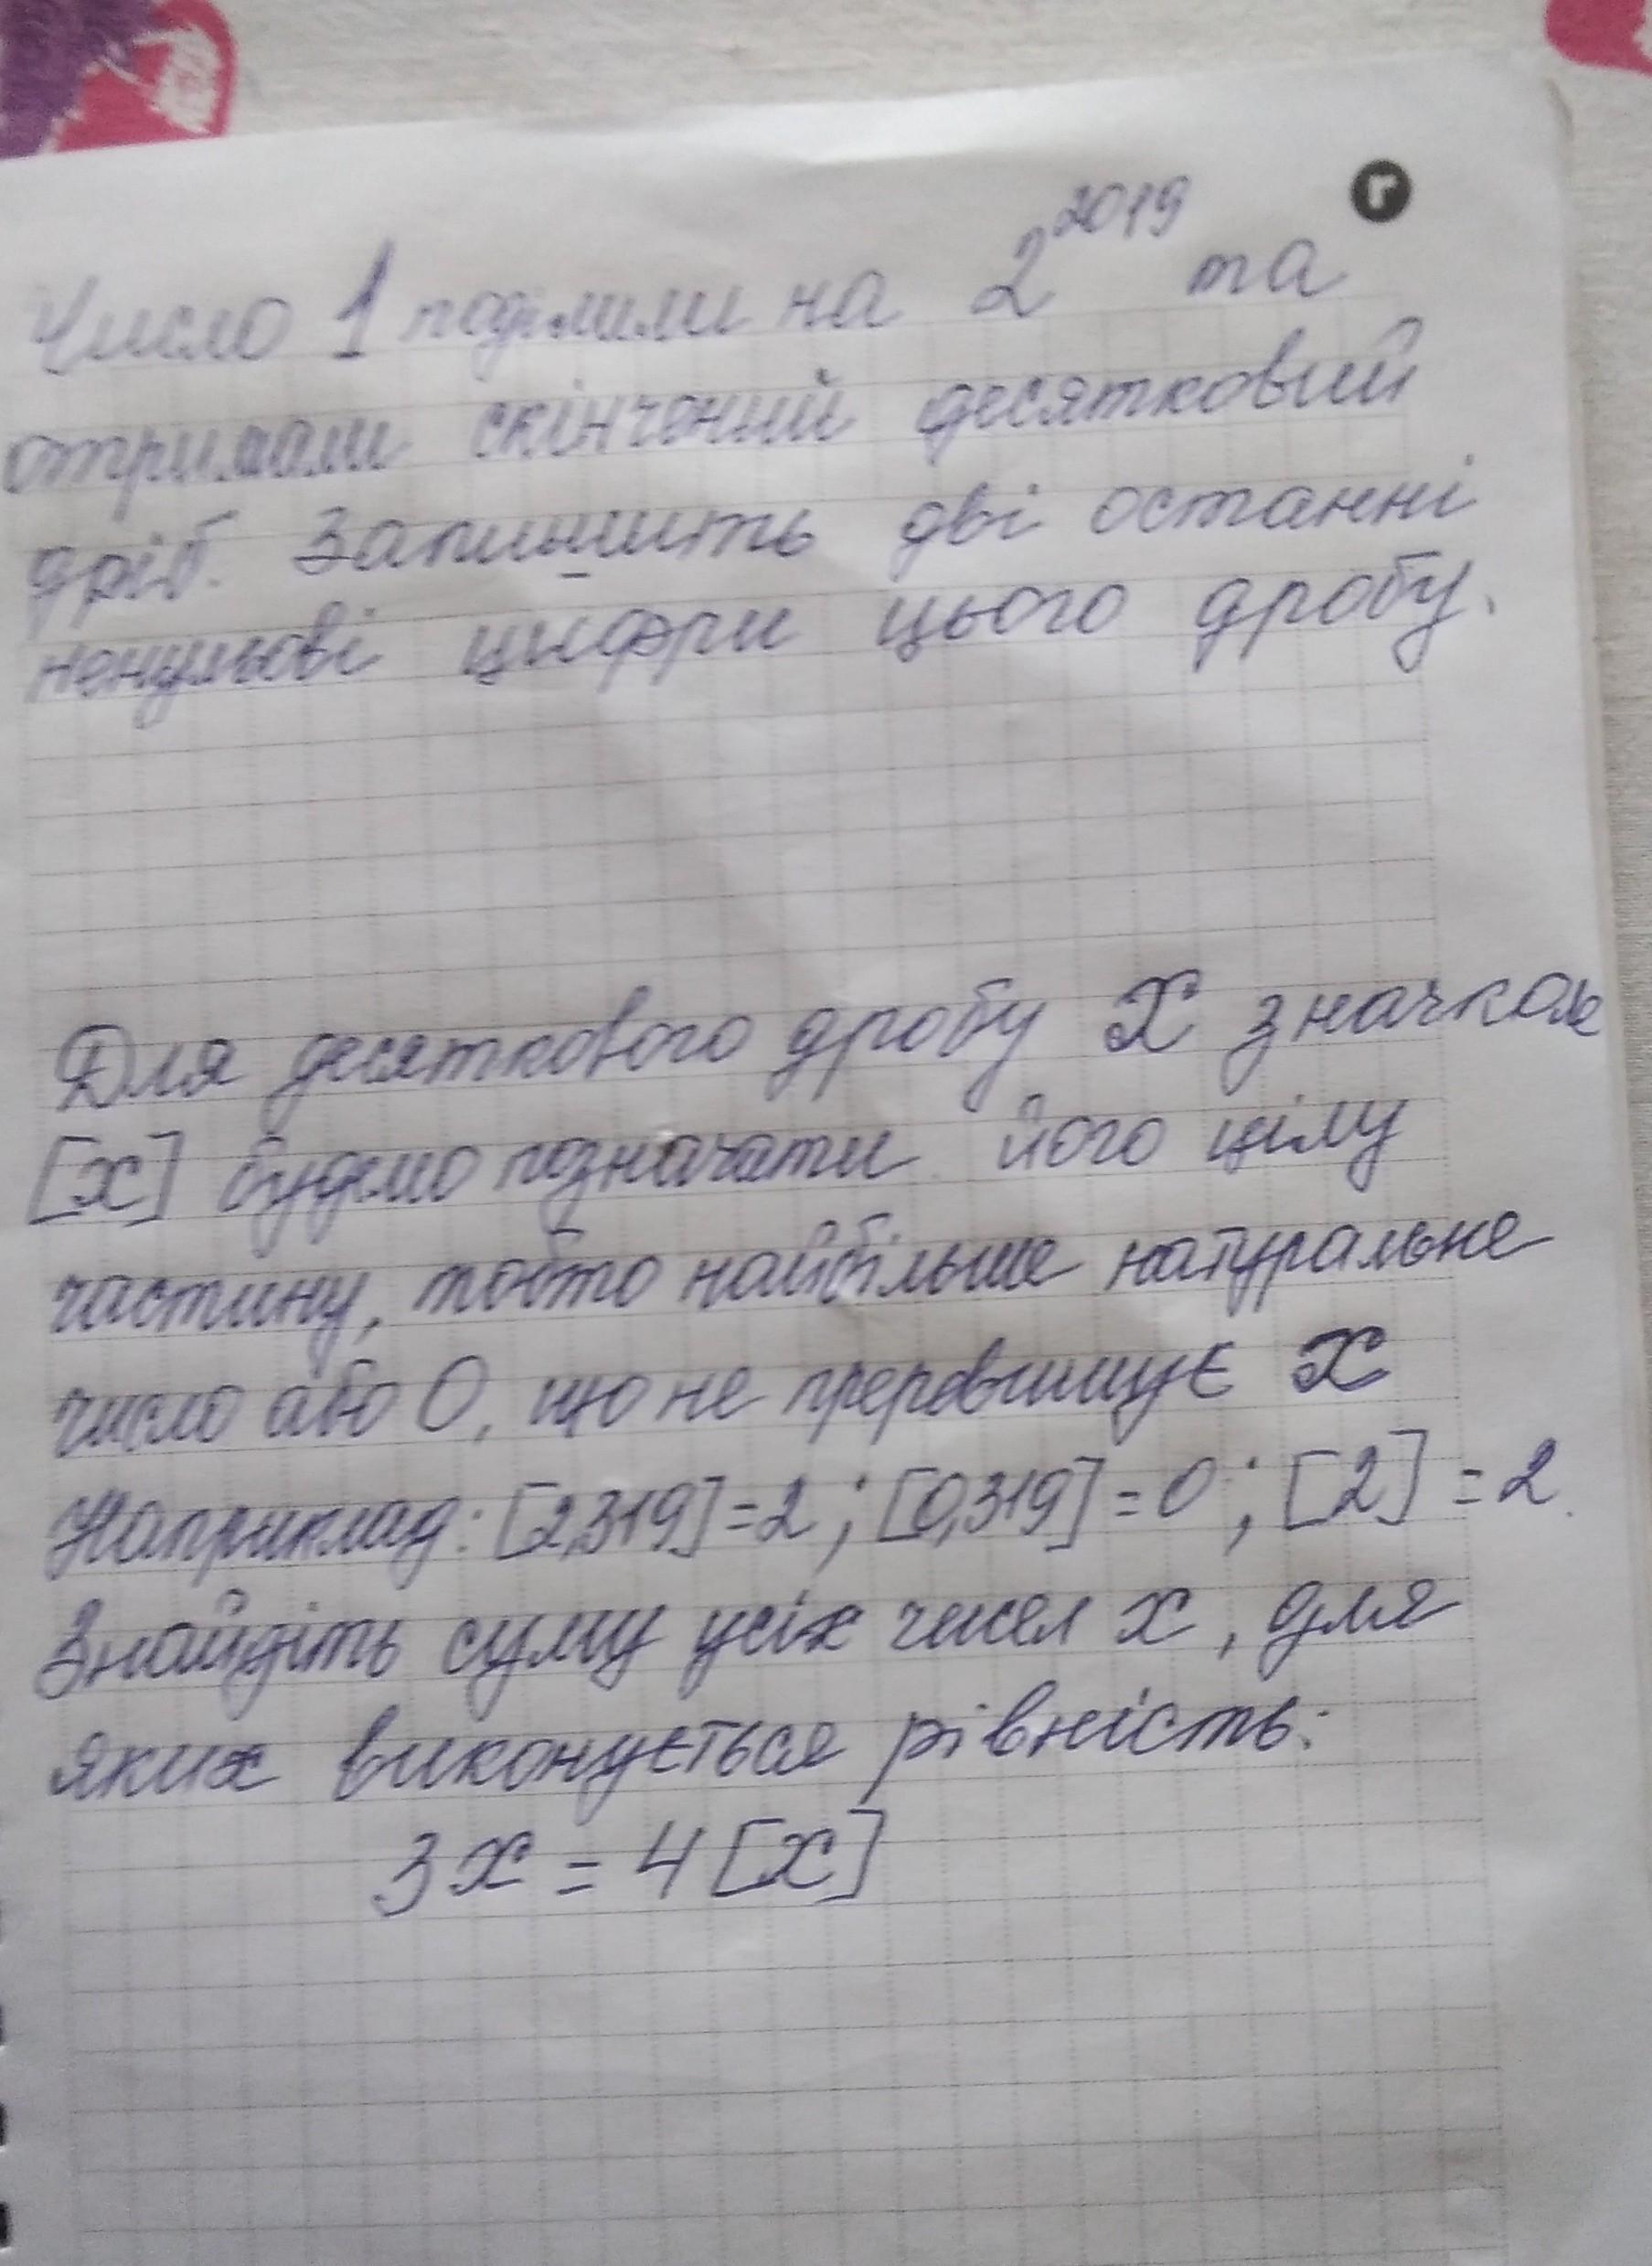 г
Число 1 поділили на 2^2019 та
отримали скінчений десятковий
дріб. Запишить дві останні
ненульові цифри цього дробу.
Для десяткового дробу x значком
[x] будемо позначати його цілу
частину, тобто найбільше натуральне
число або 0, що не преревишує x
Наприклад: [2,319]=2; [0,319]=0; [2]=2.
Знайдіть суму усіх чисел x, для
яких виконується рівність:
3x = 4[x]